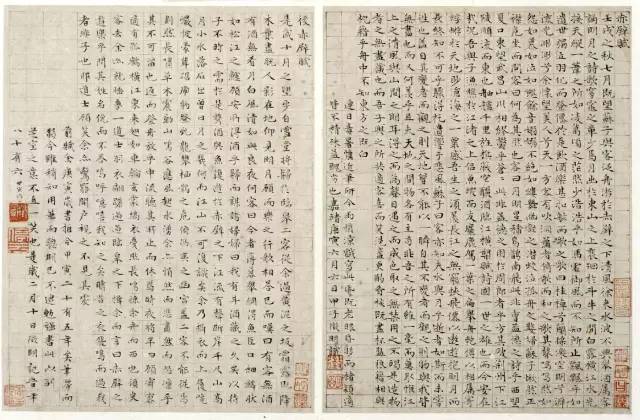 赤壁賦
壬戌之秋七月既望蘇子與客泛舟遊於赤壁之下清風徐來水波不興舉酒屬客
誦明月之詩歌窈窕之章少焉月出於東山之上裴回於斗牛之間白露橫江水光
接天縱一葦之所如凌萬頃之茫然浩浩乎如馮虛御風而不知所止飄飄乎如
遺世獨立羽化而登僊於是飲酒樂甚扣舷而歌之歌曰桂棹兮蘭槳擊空明兮
泝流光渺渺兮余懷望美人兮天一方客有吹洞簫者倚歌而和之其聲嗚嗚然如
怨如慕如泣如訴餘音嫋嫋不絕如縷舞幽壑之潛蛟泣孤舟之嫠婦蘇子愀然正
襟危坐而問客曰何為其然也客曰月明星稀烏鵲南飛此非曹孟德之詩乎西望
夏口東望武昌山川相繆鬱乎蒼蒼此非孟德之困於周郎者乎方其破荊州下江
陵順流而東也舳艫千里旌旗蔽空釃酒臨江橫槊賦詩固一世之雄也而今安在
哉況吾與子漁樵於江渚之上侶魚鰕而友麋鹿駕一葉之扁舟舉匏樽以相屬寄
蜉蝣於天地渺滄海之一粟哀吾生之須臾羨長江之無窮挾飛僊以遨遊抱明月而
長終知不可乎驟得託遺響於悲風蘇子曰客亦知夫水與月乎逝者如斯而未嘗
往也盈虛者如彼而卒莫消長也蓋將自其變者而觀之則天地曾不能以一瞬自其不變者而觀之則物與我皆
無盡也而又何羨乎且夫天地之間物各有主苟非吾之所有雖一毫而莫取惟江
上之清風與山間之明月耳得之而為聲目遇之而成色取之無禁用之不竭是造物
者之無盡藏也而吾與子之所共食客喜而笑洗盞更酌肴核既盡杯盤狼籍相與
枕籍乎舟中不知東方之既白
嘉靖庚寅六月六日甲子徵明識
後赤壁賦
是歲十月之望步自雪堂將歸於臨皋二客從余過黃泥之坂霜露既降
木葉盡脫人影在地仰見明月顧而樂之行歌相答已而嘆曰有客無酒
有酒無肴月白風清如此良夜何客曰今者薄暮舉網得魚巨口細鱗狀
如松江之鱸顧安所得酒乎歸而謀諸婦婦曰我有斗酒藏之久矣以待
子不時之需於是攜酒與魚復遊於赤壁之下江流有聲斷岸千尺山高
月小水落石出曾日月之幾何而江山不可復識矣余乃攝衣而上履巉
巖披蒙茸踞虎豹登虬龍攀棲鶻之危巢俯馮夷之幽宮蓋二客不能從
焉劃然長嘯草木震動山鳴谷應風起水湧余亦悄然而悲肅然而恐凜乎
其不可留也反而登舟放乎中流聽其所止而休焉時夜將半四顧寂寥
適有孤鶴橫江東來翅如車輪玄裳縞衣戛然長鳴掠余舟而西也須臾
客去余亦就睡夢一道士羽衣翩躚過臨皋之下揖余而言曰赤壁之
遊樂乎問其姓名俛而不答嗚呼噫嘻我知之矣疇昔之夜飛鳴而過我
者非子也耶道士顧笑余亦驚寤開戶視之不見其處
前賦余庚寅歲書抵今甲寅二十有五年矣筆滯而
弱今雖稍知用筆而聰明已不逮勉強書此以副
芝室之意不直一笑也是歲二月十日徵明記者年
八十有六